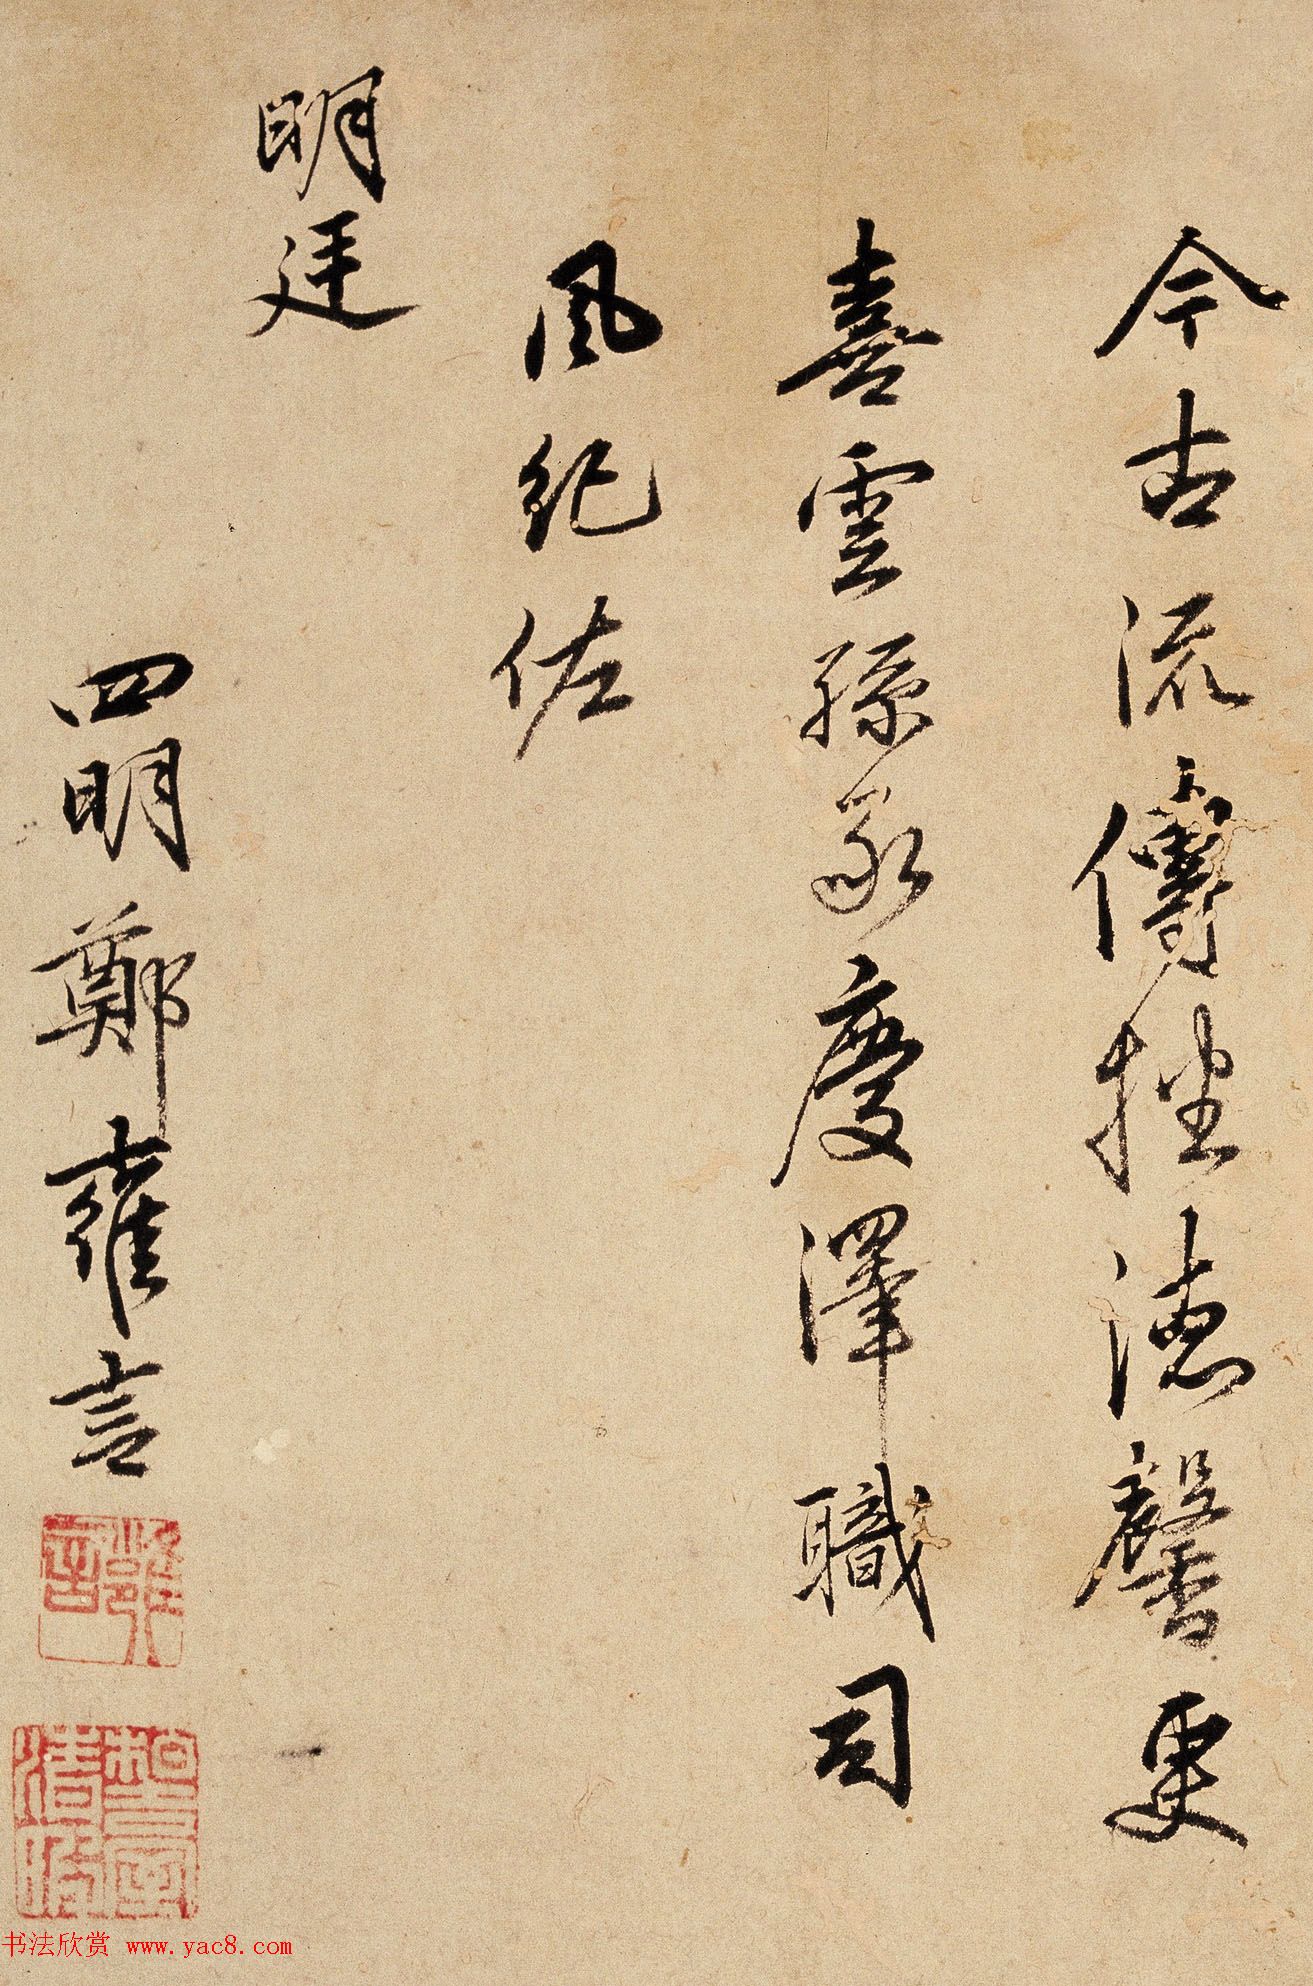 今古流傳挫德馨更
喜雲孫承慶澤職司
風紀佐
明廷
四明鄭雍言
雍言
书法欣赏 www.yac8.com